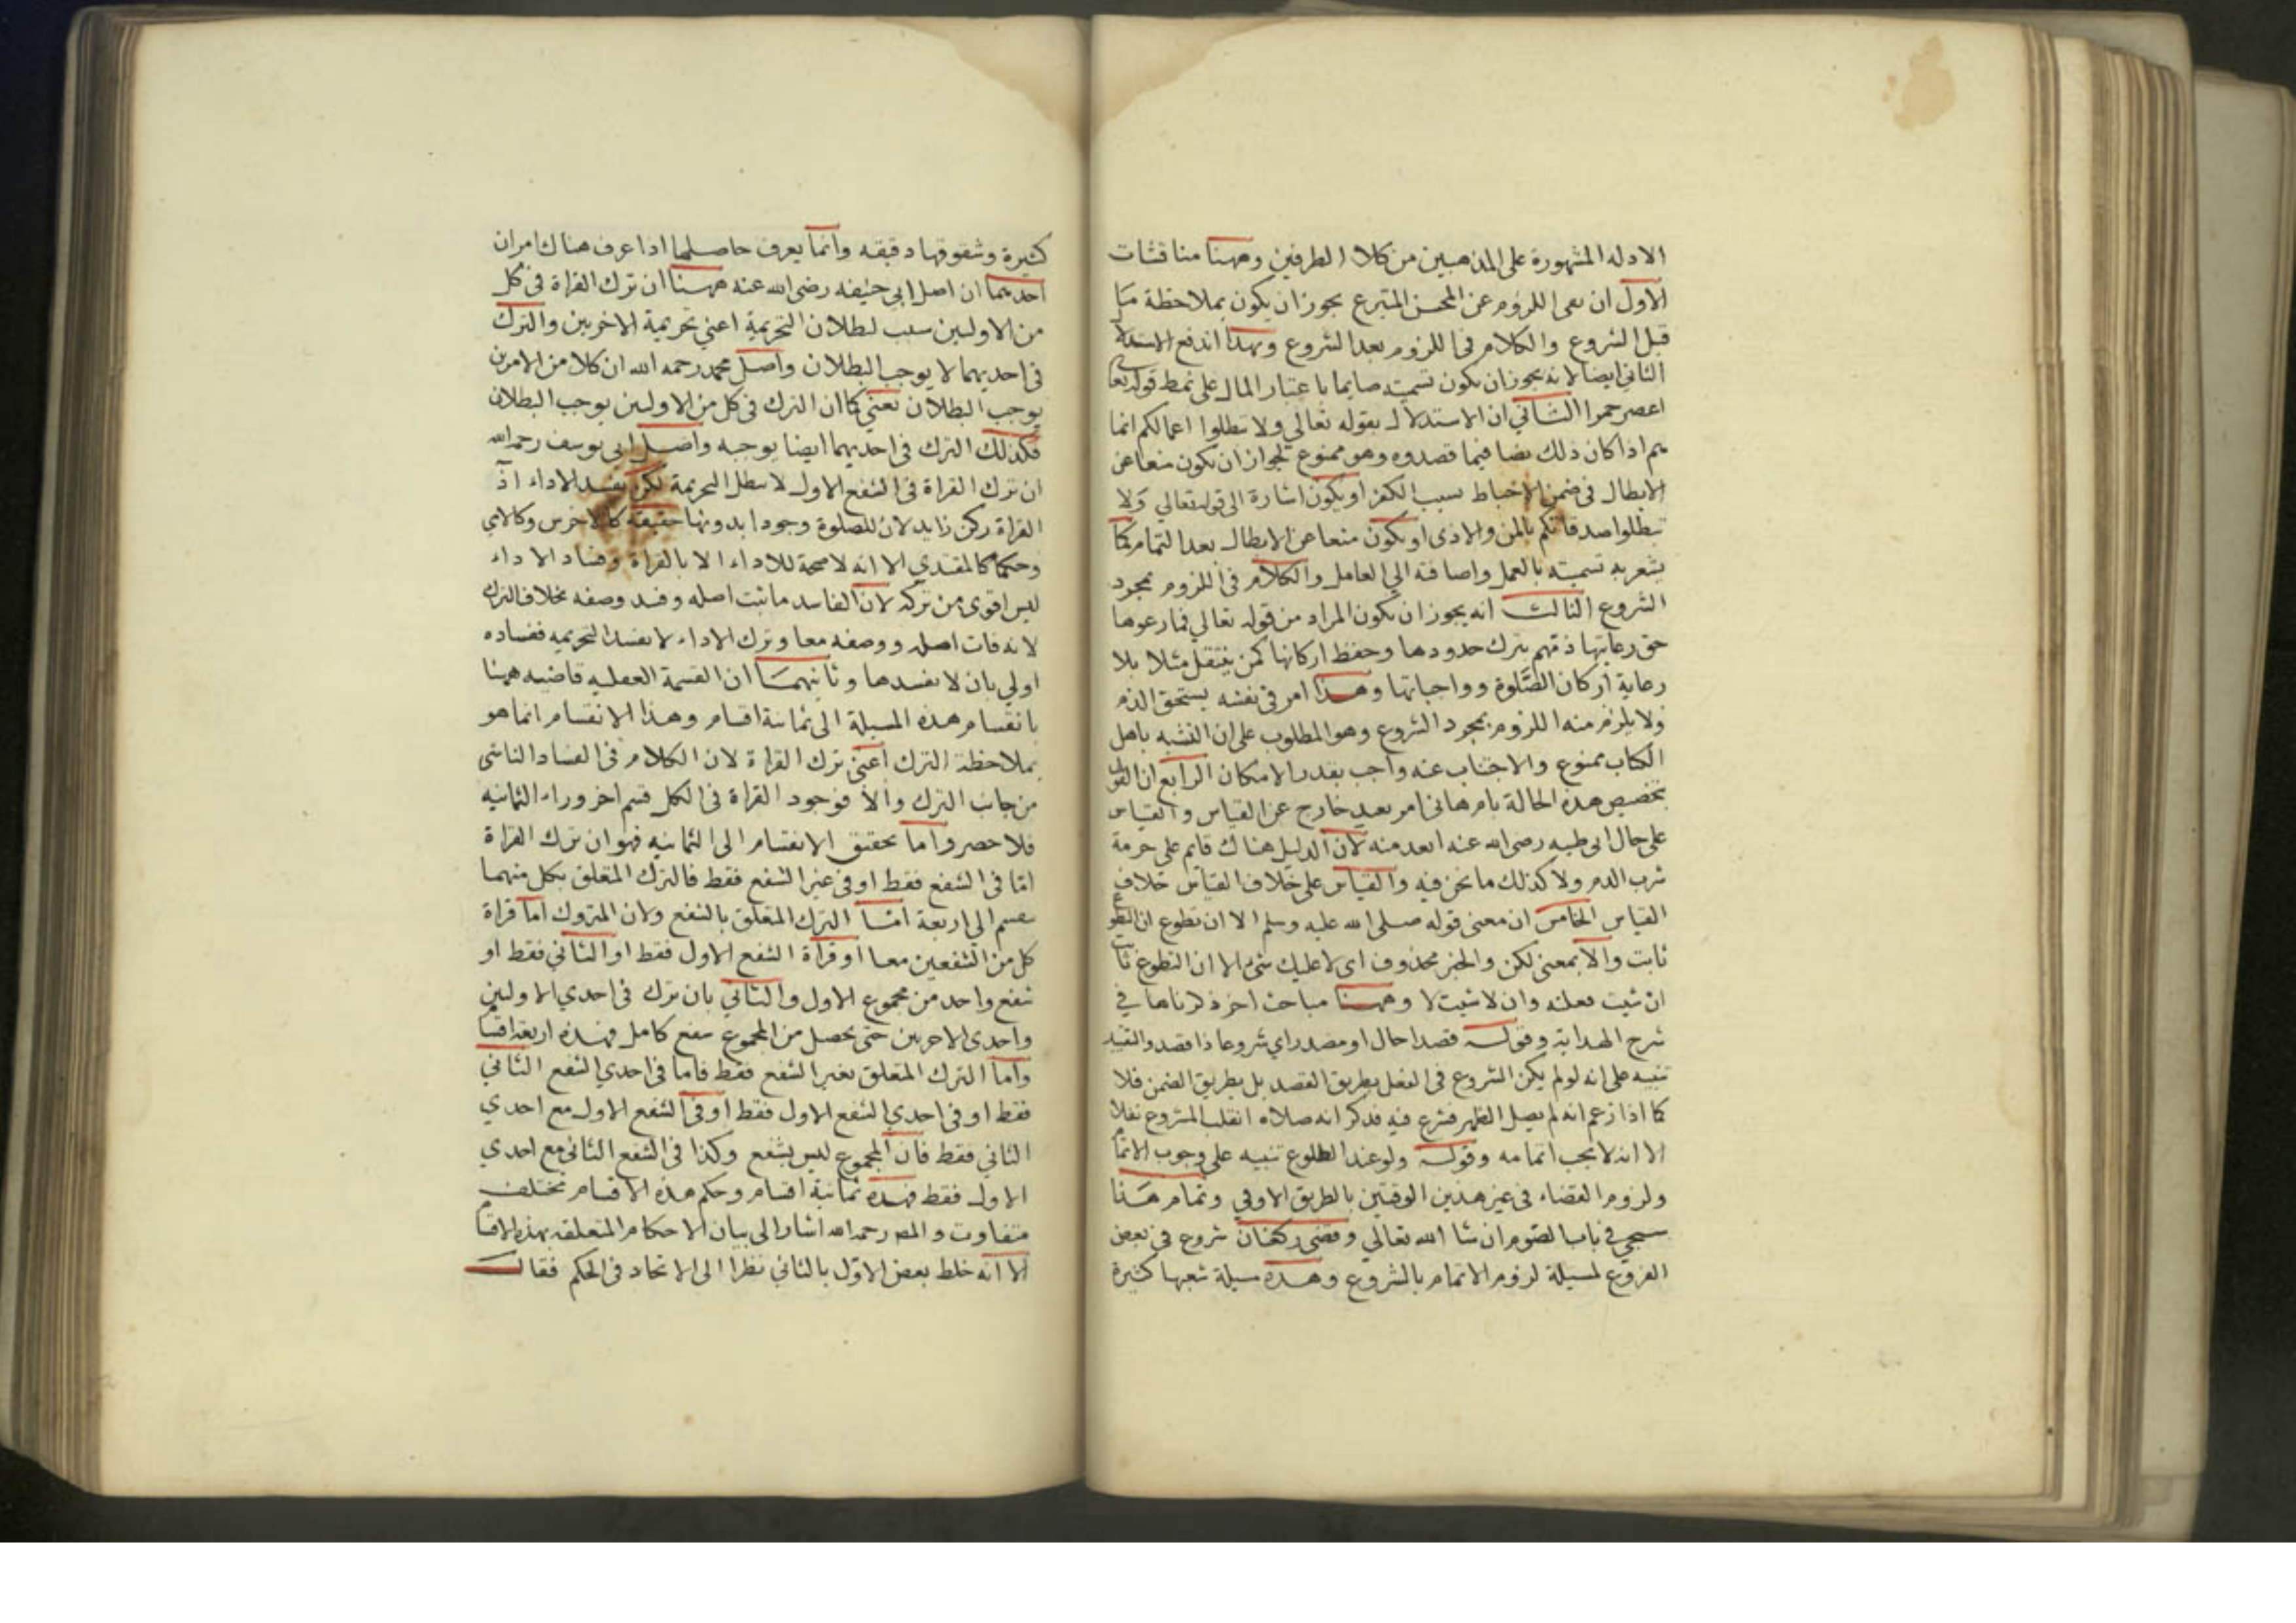 الادله المشهورة على المذهبين من كلا الطرفين وههنا مناقشات
الاول ان نفى اللزوم عن المحسن المتبرع يجوز ان يكون بملاحظة ما
قبل الشروع والكلام فى اللزوم بعد الشروع وبهذا اندفع الاستدلا
الثانى ايضا لانه يجوز ان يكون تسميته صايما باعتبار المال على نمط قوله تعا
اعصر خمرا الثاني ان الاستدلال بقوله تعالي ولا تبطلوا اعمالكم انما
يتم اذا كان ذلك نصا فيما قصدوه وهو ممنوع لجواز ان يكون منعا عن
الابطال فى ضمن الاحباط بسبب الكفر او يكون اشارة الى قوله تعالي ولا
تبطلوا صدقاتكم بالمن والاذى او يكون منعا عن الابطال بعد التمام كما
يشعر به تسميته بالعمل واضافته الي العامل والكلام فى اللزوم بمجرد
الشروع الثالث انه يجوز ان يكون المراد من قوله تعالي فما رعوها
حق رعايتها ذمهم بترك حدودها وحفظ اركانها كمن يتنفل مثلا بلا
رعاية اركان الصلوة وواجباتها وهذا امر فى نفسه يستحق الذم
ولا يلزم منه اللزوم بمجرد الشروع وهو المطلوب على ان التشبه باهل
الكتاب ممنوع والاجتناب عنه واجب بقدر الامكان الرابع ان القول
بتخصيص هذه الحالة بام هانى امر بعيد خارج عن القياس والقياس
على حال ابى طيبه رضى الله عنه ابعد منه لان الدليل هناك قايم على حرمة
شرب الدم ولا كذلك ما نحن فيه والقياس على خلاف القياس خلاف
القياس الخامس ان معنى قوله صلى الله عليه وسلم الا ان تطوع ان التطوع
ثابت والا بمعنى لكن والخبر محذوف اى لا عليك شئ الا ان التطوع ثابت
ان شيت فعلته وان لا شيت لا وههنا مباحث اخر ذكرناها في
شرح الهداية وقوله قصدا حال او مصدر اي شروعا ذا قصد والقيد
تنبيه على انه لو لم يكن الشروع فى النفل بطريق القصد بل بطريق الضمن فلا
كما اذا زعم انه لم يصل الظهر فشرع فيه فذكر انه صلاه انقلب المشروع نفلا
الا انه لا يجب اتمامه وقوله ولو عند الطلوع تنبيه على وجوب الاتمام
ولزوم القضاء فى غير هذين الوقتين بالطريق الاوفي وتمام هذا
سيجي في باب الصوم ان شا الله تعالي وقضى ركعتان شروع في بعض
الفروع لمسيلة لزوم الاتمام بالشروع وهذه مسيلة شعبها كثيرة
كثيرة وشقوقها دقيقه وانما يعرف حاصلها اذا عرف هناك امران
احدهما ان اصل ابي حنيفه رضى الله عنه ههنا ان ترك القراة فى كل
من الاوليين سبب لبطلان التحريمة اعني تحريمة الاخريين والترك
فى احديهما لا يوجب البطلان واصل محمد رحمه الله ان كلا من الامرين
يوجب البطلان يعني كما ان الترك فى كل من الاوليين يوجب البطلان
فكذلك الترك فى احديهما ايضا يوجبه واصل ابى يوسف رحمه الله
ان ترك القراة فى الشفع الاول لا يبطل التحريمة لكن يفسد الاداء اذ
القراة ركن زايد لان للصلوة وجودا بدونها حقيقة كالاخرس وكالامي
وحكما كالمقتدي الا انه لا صحة للاداء الا بالقراة وفساد الاداء
ليس اقوى من تركه لان الفاسد ما ثبت اصله وفسد وصفه بخلاف الترك
لانه فات اصله ووصفه معا وترك الاداء لا يفسد التحريمه ففساده
اولي بان لا يفسدها وثانيهما ان القسمة العقليه قاضيه ههنا
بانقسام هذه المسيلة الى ثمانية اقسام وهذا الانقسام انما هو
بملاحظة الترك اعنى ترك القراة لان الكلام فى الفساد الناشى
من جانب الترك والا فوجود القراة فى الكل قسم اخر وراء الثمانيه
فلا حصر واما تحقيق الانقسام الى الثمانيه فهو ان ترك القراة
اما فى الشفع فقط او فى غير الشفع فقط فالترك المتعلق بكل منهما
ينقسم الي اربعة اما الترك المتعلق بالشفع فلان المتروك اما قراة
كل من الشفعين معا او قراة الشفع الاول فقط او الثاني فقط او
شفع واحد من مجموع الاول والثاني بان ترك فى احدي الاوليين
واحدى الاخريين حتى يحصل من المجموع شفع كامل فهذه اربعة اقسا
واما الترك المتعلق بغير الشفع فقط فاما فى احدي الشفع الثاني
فقط او فى احدي الشفع الاول فقط او فى الشفع الاول مع احدي
الثاني فقط فان المجموع ليس بشفع وكذا فى الشفع الثانى مع احدي
الاول فقط فهذه ثمانية اقسام وحكم هذه الاقسام مختلف
متفاوت والمصر رحمه الله اشار الى بيان الاحكام المتعلقه بهذه الاقسام
الا انه خلط بعض الاول بالثاني نظرا الى الاتحاد فى الحكم فقال